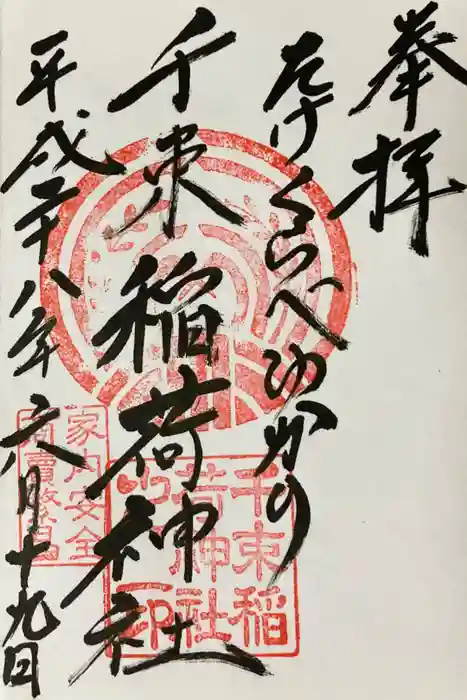 奉拝
たけくらべゆかり
千束稲荷神社
平成二十八年六月十九日
千束稲
荷神社
家内安全
商賣繁昌